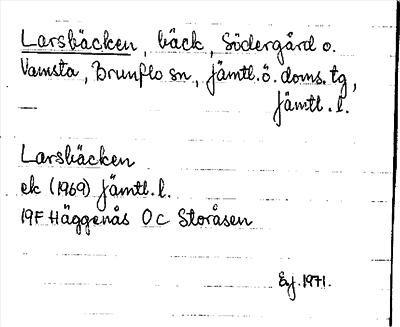 Larsbäcken, bäck, Södergård o.
Vamsta, Brunflo sn, Jämtl. ö. doms. tg,
Jämtl. l.
Larsbäcken
ek (1969) Jämtl. l.
19F Häggenås 0c Storåsen
1971.